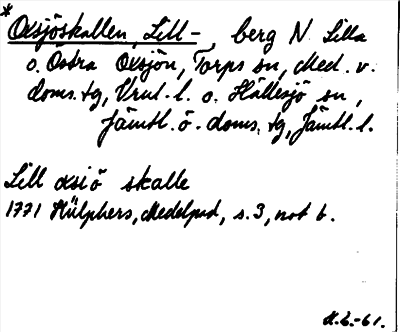 * Oxsjöskallen, Lill-, berg N. Lilla
o. Östra Oxsjön, Torps sn, Med. v.
doms. tg, Vrnl. l. o. Hällesjö sn,
Jämtl. ö. doms. tg, Jämtl. l.
Lill oxsiö skalle
1771 Hülphers, Medelpad, s. 3, not b.
H.L.-61.